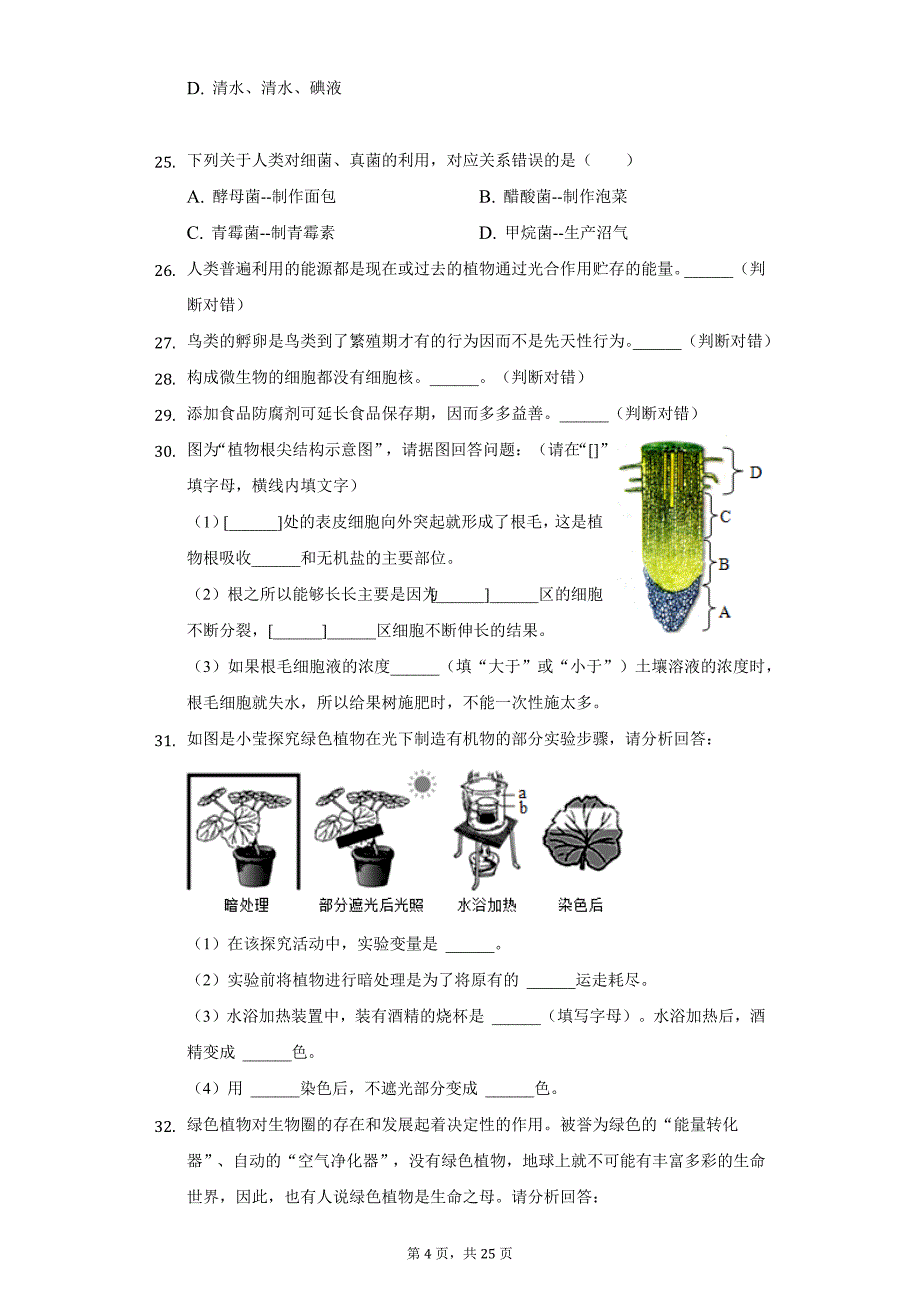 D. 清水、清水、碘液
25. 下列关于人类对细菌、真菌的利用，对应关系错误的是（　　）
A. 酵母菌--制作面包 B. 醋酸菌--制作泡菜
C. 青霉菌--制青霉素 D. 甲烷菌--生产沼气
26. 人类普遍利用的能源都是现在或过去的植物通过光合作用贮存的能量。______（判
断对错）
27. 鸟类的孵卵是鸟类到了繁殖期才有的行为因而不是先天性行为。______（判断对错）
28. 构成微生物的细胞都没有细胞核。______。（判断对错）
29. 添加食品防腐剂可延长食品保存期，因而多多益善。______（判断对错）
30. 图为“植物根尖结构示意图”，请据图回答问题：（请在“[]”
填字母，横线内填文字）
（1）[______]处的表皮细胞向外突起就形成了根毛，这是植
物根吸收______和无机盐的主要部位。
（2）根之所以能够长长主要是因为[______]______区的细胞
不断分裂，[______]______区细胞不断伸长的结果。
D
C
B
A
（3）如果根毛细胞液的浓度______（填“大于”或“小于”）土壤溶液的浓度时，
根毛细胞就失水，所以给果树施肥时，不能一次性施太多。
31. 如图是小莹探究绿色植物在光下制造有机物的部分实验步骤，请分析回答：
a
b
暗处理 部分遮光后光照 水浴加热 染色后
（1）在该探究活动中，实验变量是 ______。
（2）实验前将植物进行暗处理是为了将原有的 ______运走耗尽。
（3）水浴加热装置中，装有酒精的烧杯是 ______（填写字母）。水浴加热后，酒
精变成 ______色。
（4）用 ______染色后，不遮光部分变成 ______色。
32. 绿色植物对生物圈的存在和发展起着决定性的作用。被誉为绿色的“能量转化
器”、自动的“空气净化器”，没有绿色植物，地球上就不可能有丰富多彩的生命
世界，因此，也有人说绿色植物是生命之母。请分析回答：
第 4 页，共 25 页